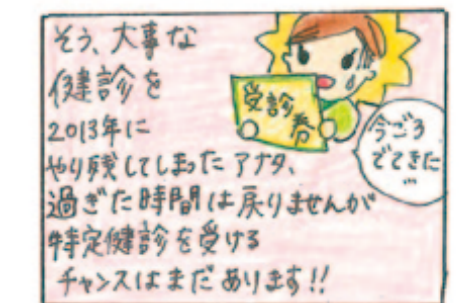 そう、大事な
健診を
2013年に
やり残してしまったアナタ、
過ぎた時間は戻りませんが
特定健診を受ける
チャンスはまだあります!!
受診
券
今ごろ
でてきた
…